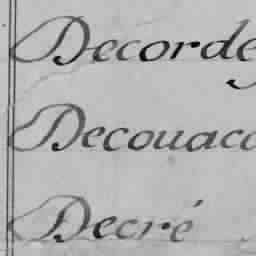 Decorde
Decouac
Decré